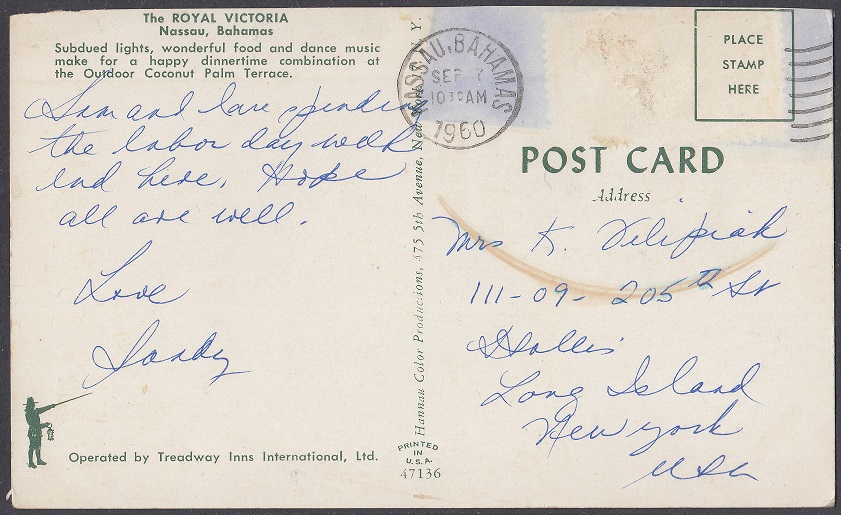 The ROYAL VICTORIA
Nassau, Bahamas
Subdued lights, wonderful food and dance music
make for a happy dinnertime combination at
the Outdoor Coconut Palm Terrace.
Sam and I are spending
the labor day week
end here. Hope
all are well.
Love
Sandy
Operated by Treadway Inns International, Ltd.
Hannau Color Productions, 475 5th Avenue, New York, N. Y.
PRINTED
IN
U.S.A.
47136
NASSAU, BAHAMAS
SEP 7
1030AM
1960
PLACE
STAMP
HERE
POST CARD
Address
Mrs K.
111-09- 205th St
Hollis
Long Island
New york
USA